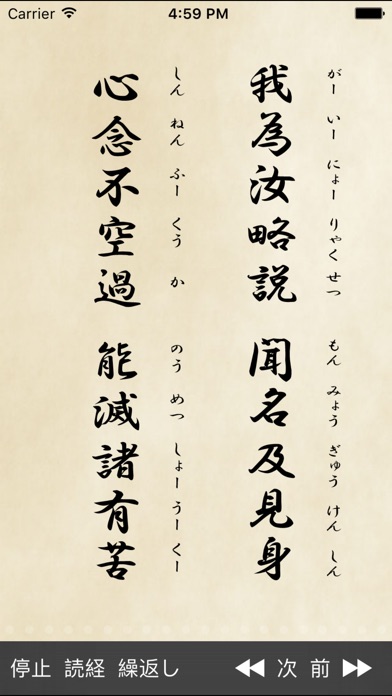 Carrier 4:59 PM
がー いー にょー りゃく せつ もん みょう ぎゅう けん しん
我為汝略説 聞名及見身
しん ねん ふー くう か のう めつ しょー うー くー
心念不空過 能滅諸有苦
停止 読経 繰返し 次 前